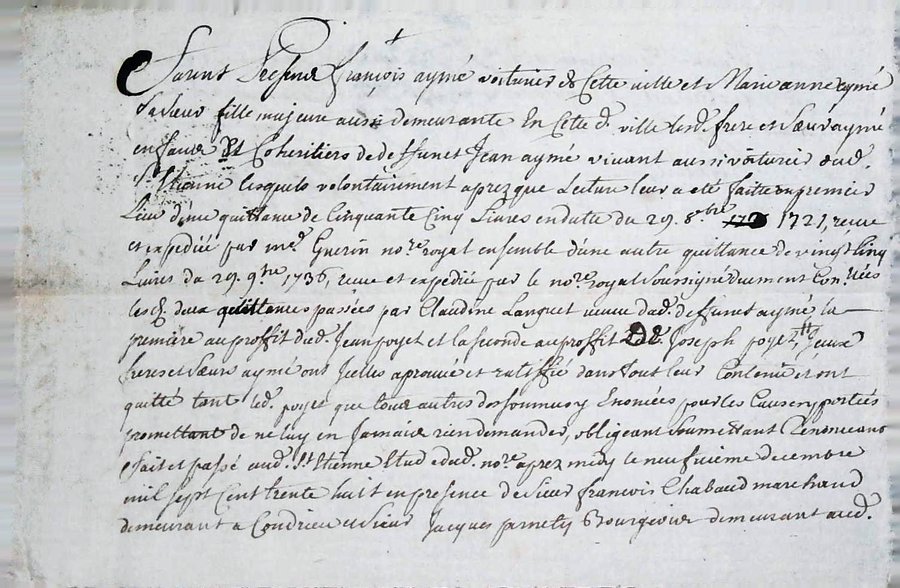 Furent présens françois aymé voiturier de Cette ville et Marie anne aymé
sa sœur fille majeure aussi demeurante En Cette d.e ville lesd. frere et sœur aymé
enfans Et Coheritiers de deffunct Jean aymé vivant aussi voiturier aud.
St. Etienne lesquels volontairement aprez que Lecture leur a eté faitte en premier
Lieu d'une quittance de Cinquante Cinq Livres en datte du 29. 8bre 1721, receue
et expediée par me. Guerin no.re royal ensemble d'une autre quittance de vingt Cinq
Livres du 29. 9bre. 1736, receue et expediée par le no.re royal soussigné duement Con.lées
lesd. deux quittances passées par Claudine Languet veuve dud. deffunct aymé la
premiere au proffit dud. Jean poyet et la seconde au proffit de Joseph poyet
freres et sœur aymé ont Jcelles aprouvé et ratiffié dans tout leur Contenu et ont
quitté tant led. poyet que tous autres des sommes y Enoncées pour les Causes y portées
promettant de ne luy en Jamais rien demander, obligeant soumettant Renonceant
fait et passé aud. St. Etienne Etude dud. no.re aprez midy le neufvieme decembre
mil sept Cent trente huit en presence de sieur françois Chabaud marchand
demeurant a Condrieu et sieur Jacques Bourgeois demeurant aud.